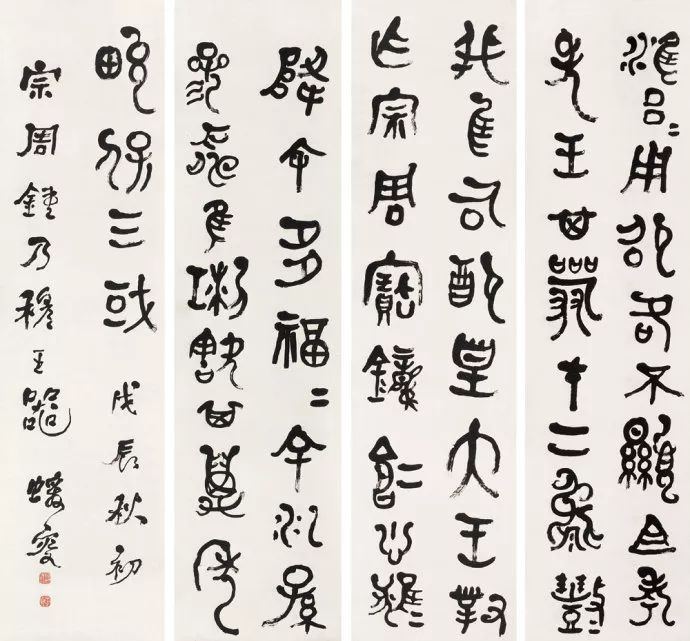 雝〓用卲各不顯且考
先王其嚴才上
我隹司配皇天王對
乍宗周寶鐘倉〓
降余多福〓余順孫
參壽隹琍㝬其萬年
畯保三或 戊辰秋初
宗周鐘乃穆王器 蠖叟